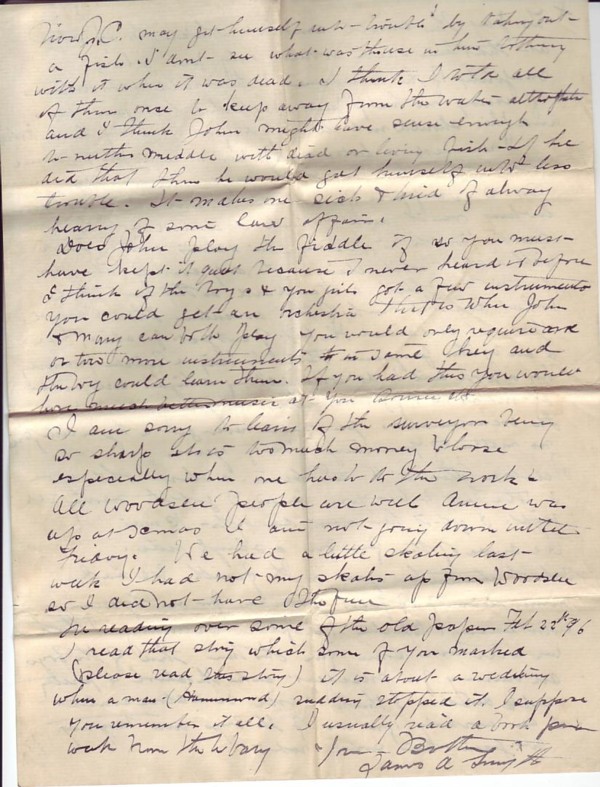 may get himself into trouble by taking out
a fish. I dont see what was the use in him bothering
with it when it was dead. I think I told all
of them once to keep away from the water altogether
and I think John might have sense enough
to middle with dead or living fish. If he
did that then he would get himself into less
trouble. It makes me sick & tired of always
hearing of some law affair.
Does John play the fiddle if so you must
have kept it quiet because I never heard it before
I think if the boys & you girls got a few instruments
you could get an orchestra. That is when John
& Mary can both play you would only require one
or two more instruments in same key and
the boy could learn them. If you had this you would
have much better music at
I am sorry to learn of the surveyor being
so sharp its too much money to lose
especially when one has to do the work.
All Woodslee people are well Annie was
up at Xmas I am not going down until
Friday. We had a little skating last
week I had not my skates up from Woodslee
so I did not have the fun
In reading over some of the old papers Feb 22nd 96
I read that story which some of you marked
(please read this story) it is about a wedding
when a man (Hammond) stopped it. I suppose
you remember it all. I usually read a book per
week from the library
Your Brother
James A Smyth